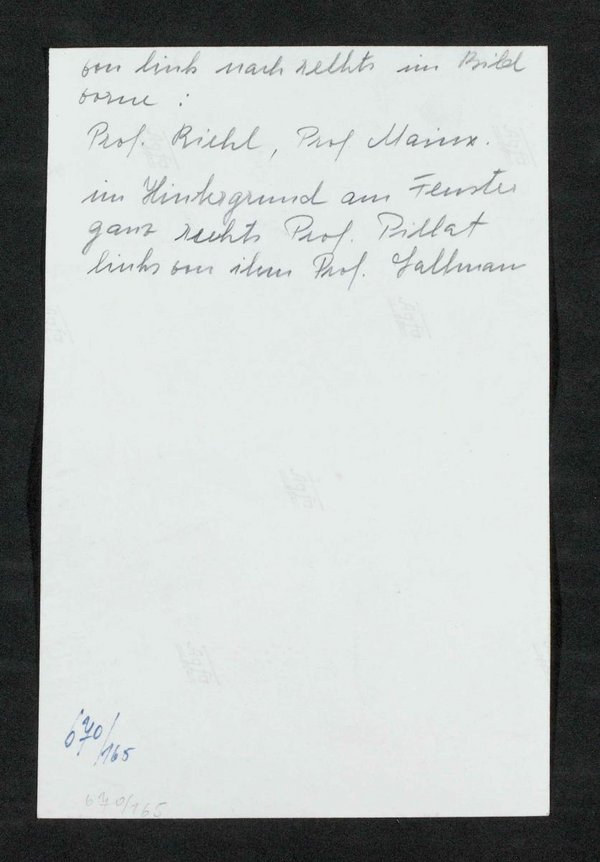 von link nach rechts im Bild
vorne :
Prof. Riehl, Prof Mainx.
im Hintergrund am Fenster
ganz rechts Prof. Pillat
links von ihm Prof. Tallman
670/165
670/165